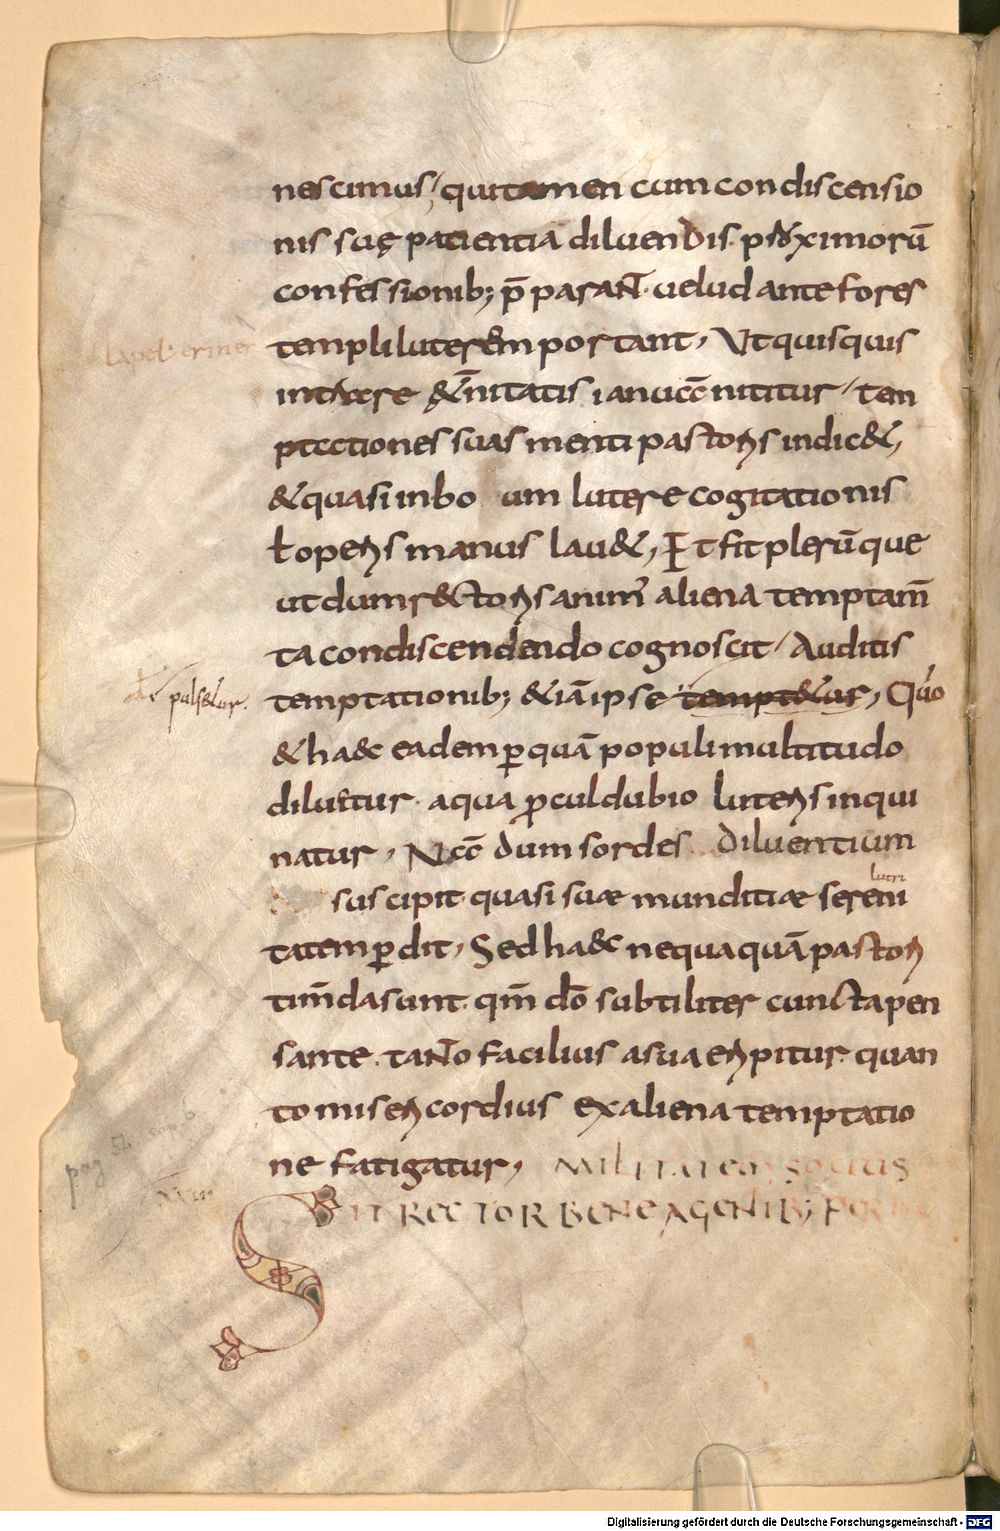 nescimus; qui tamen cum condiscensio
nis suę patientia diluendis proximorū
confessionib; p̄parant ueludante fores
templi luterem portant, Ut quisquis
intrare &̄nitatis ianua nititur, tem
ptationes suas menti pastoris indic&,
& quasi in bo um lutere cogitationis
ł operis manus lau&, Et fit plerūque
ut dum rectoris animꝰ aliena temptam̄
ta condiscendendo cognoscit, Auditis
pulsetur.
temptationib; &iā ipse temptetur, Quo
& haec eadem ꝑ quā populi multitudo
diluitur aqua ꝓculdubio luteris inqui
natur, Nā dum sordes diluentium
lutri
suscipit quasi suae munditiae sereni
tatem ꝑdit, Sed haec nequaquā pastori
tim̄da sunt qm̄ dō subtiliter cuncta pen
sante tanto facilius a sua eripitur quan
to misericordius ex aliena temptatio
ne fatigatur, MILITATEM SOCIUS
SIT RECTOR BENE AGENTIB; PER HU
Digitalisierung gefördert durch die Deutsche Forschungsgemeinschaft - DFG